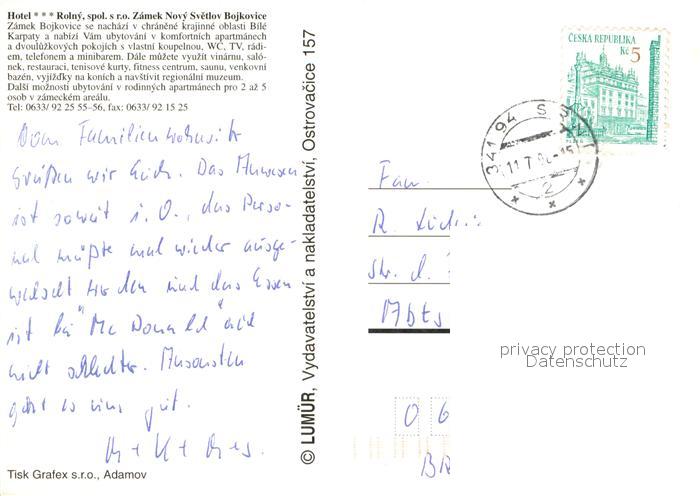 Hotel * * * Rolný, spol. s r.o. Zámek Nový Světlov Bojkovice
Zámek Bojkovice se nachází v chráněné krajinné oblasti Bílé
Karpaty a nabízí Vám ubytování v komfortních apartmánech
a dvoulůžkových pokojích s vlastní koupelnou, WC, TV, rádi-
em, telefonem a minibarem. Dále můžete využít vinárnu, saló-
nek, restauraci, tenisové kurty, fitness centrum, saunu, venkovní
bazén, vyjížďky na koních a navštívit regionální muzeum.
Další možnosti ubytování v rodinných apartmánech pro 2 až 5
osob v zámeckém areálu.
Tel: 0633/ 92 25 55–56, fax: 0633/ 92 15 25
Vom
grüßen wir Euch. Das
ist soweit i. O., das Perso-
nal müßte mal wieder ausge-
wechselt werden und das Essen
ist bei "Mc Donald" auch
nicht schlechter. Ansonsten
geht es uns gut.
Tisk Grafex s.r.o., Adamov
© LUMÜR, Vydavatelství a nakladatelství, Ostrovačice 157
ČESKÁ REPUBLIKA
Kč 5
PLZEŇ
341 94
2
Fam.
R.
Str. d.
0 6
privacy protection
Datenschutz